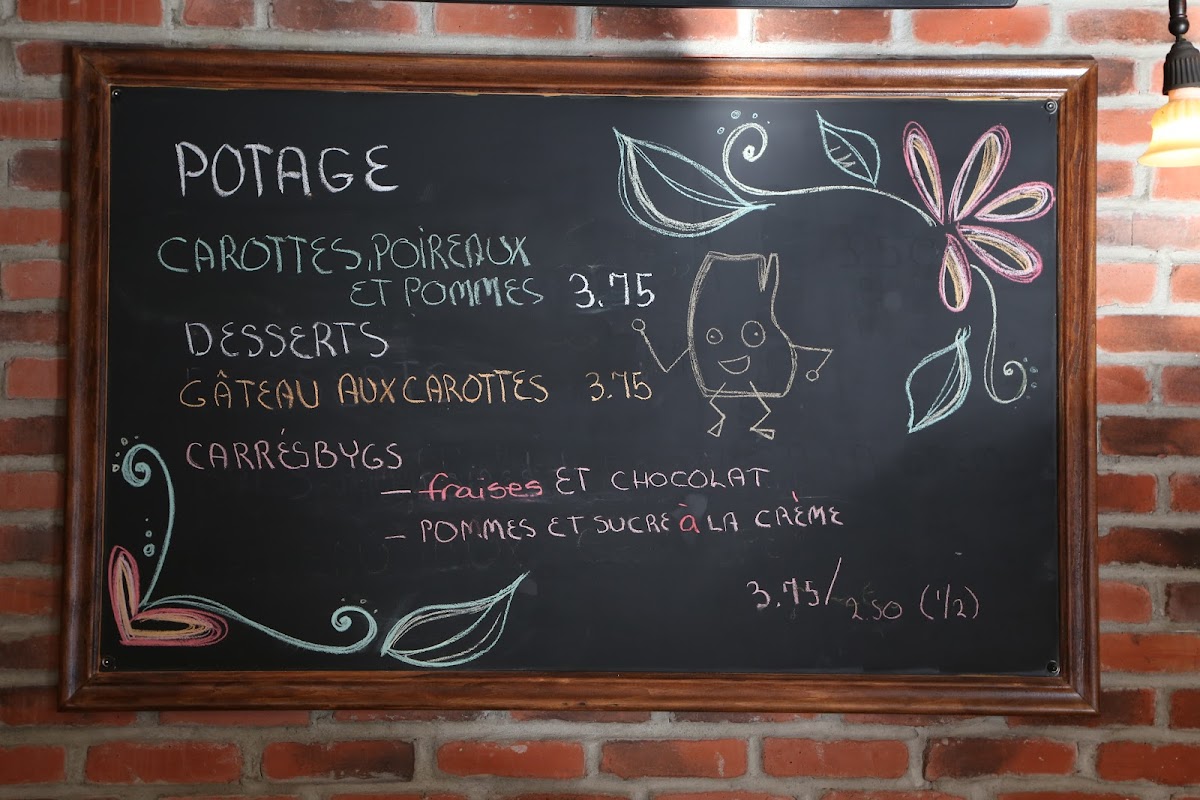 POTAGE
CAROTTES, POIREAUX
ET POMMES 3.75
DESSERTS
GÂTEAU AUX CAROTTES 3.75
CARRÉS BYGS
- fraises ET CHOCOLAT
- POMMES ET SUCRE à LA CRÈME
3.75/2.50 (1/2)